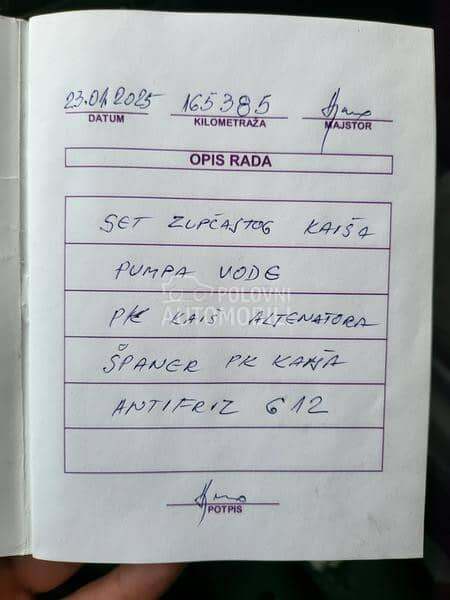 23.01.2025 165385
DATUM KILOMETRAŽA MAJSTOR
OPIS RADA
SET ZUPČASTOG KAIŠA
PUMPA VODE
POLOVNI
AUTOMOBILI
PK KAIŠ ALTENATORA
ŠPANER PK KAIŠA
ANTIFRIZ G12
POTPIS